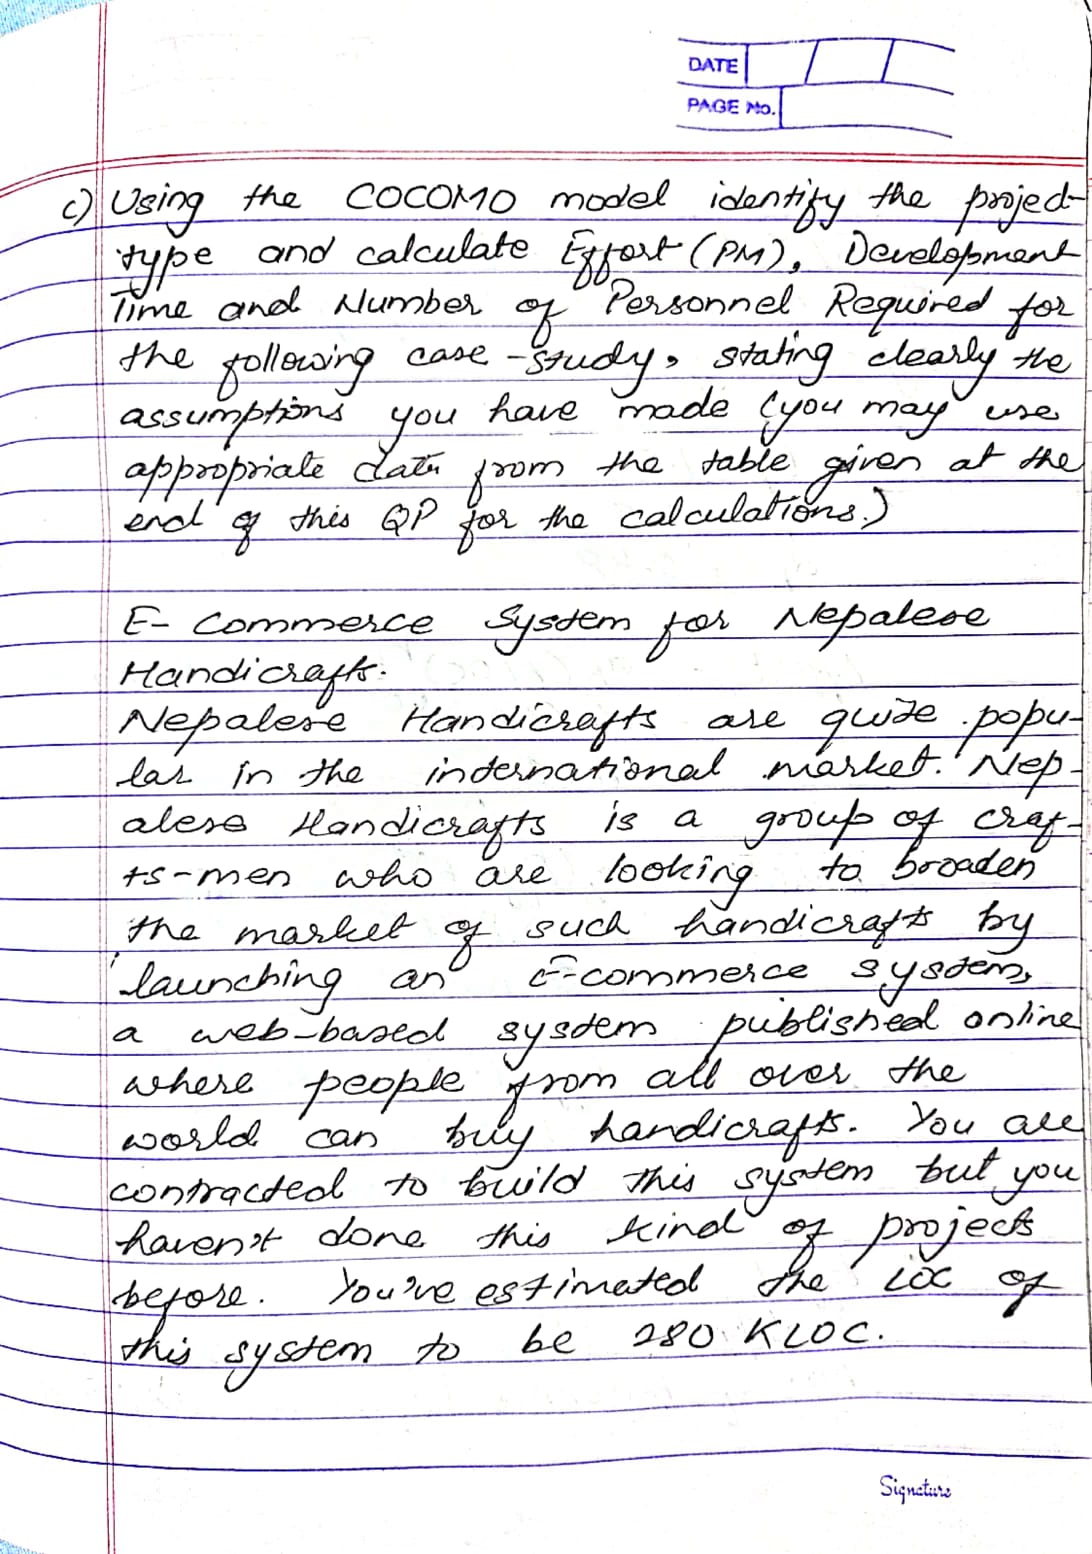 DATE
PAGE No.
c) Using the COCOMO model identify the project
type and calculate Effort (PM), Development
Time and Number of Personnel Required for
the following case-study, stating clearly the
assumptions you have made (you may use
appropriate data from the table given at the
end of this QP for the calculations.)
E-Commerce System for Nepalese
Handicrafts.
Nepalese Handicrafts are quite popu-
lar in the international market. Nep-
alese Handicrafts is a group of craf-
ts-men who are looking to broaden
the market of such handicrafts by
launching an E-commerce system,
a web-based system published online
where people from all over the
world can buy handicrafts. You are
contracted to build this system but you
haven't done this kind of projects
before. You've estimated the LOC of
this system to be 280 KLOC.
Signature